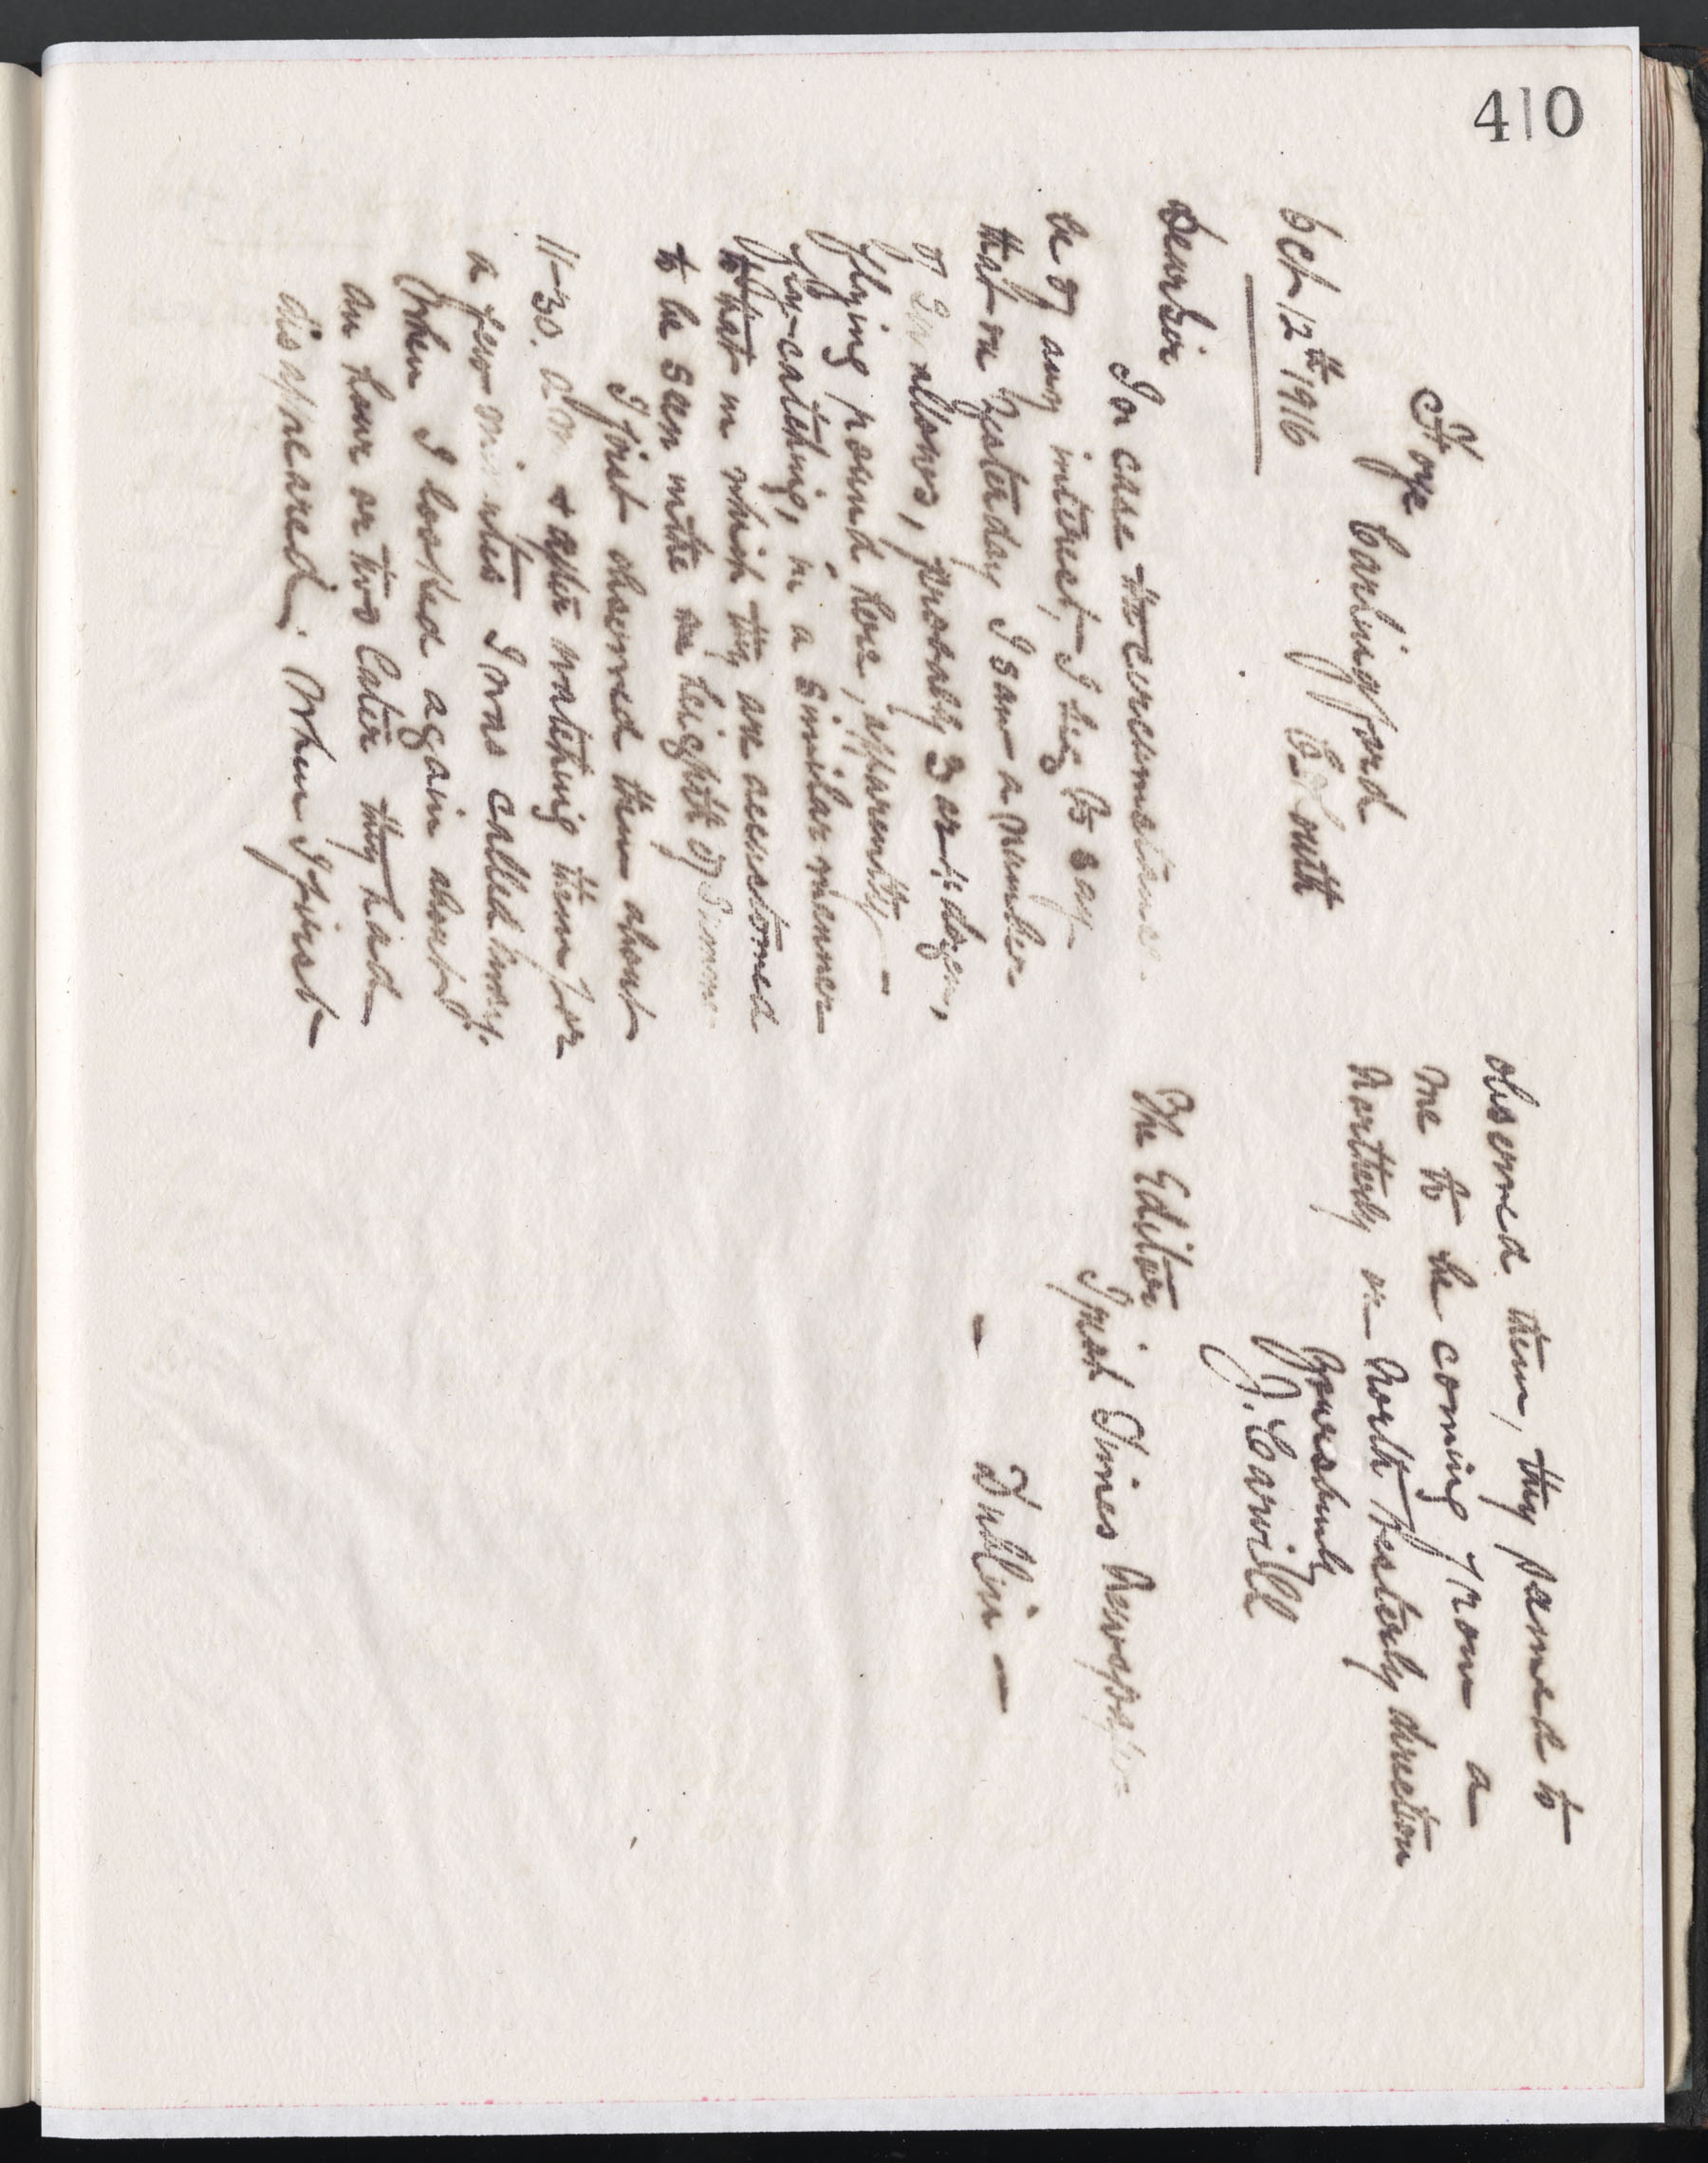 410
Ffoye
Carlingford
Co Louth
Oct 12th 1916
Dear Sir
In case the circumstance
be of any interest, I beg to say
that on Yesterday I saw a number
of Swallows, probably 3 or 4 dozen,
flying round here, apparently -
fly-catching, in a similar manner
to that in which they are accustomed
to be seen in the height of Summer
I first observed them about
11-30. a.m & after watching them for
a few minutes I was called away.
When I looked again about
an hour or two later they had
disappeared. When I first
observed them, they seemed to
me to be coming from a
Northerly or North Westerly direction
Yours truly
J. Carvill
The Editor
Irish Times Newspaper
- Dublin -